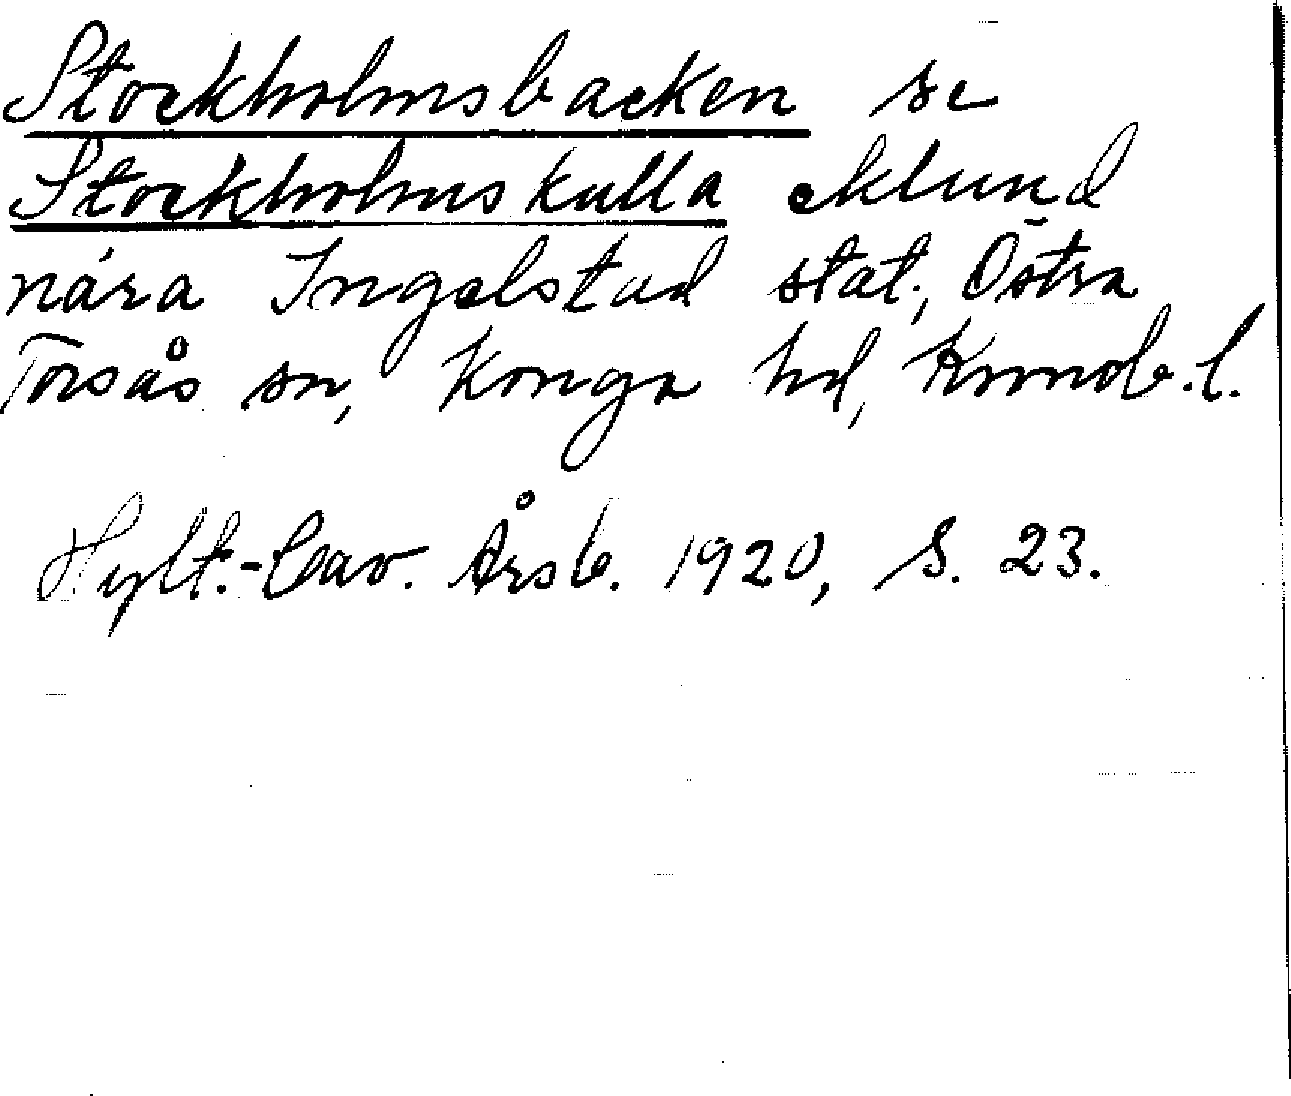 Stockholmsbacken se
Stockholmskulla eklund
nära Ingelstad stat., Östra
Torsås sn, Konga hd, Kronob. l.
Hylt.-Cav. Årsb. 1920, S. 23.